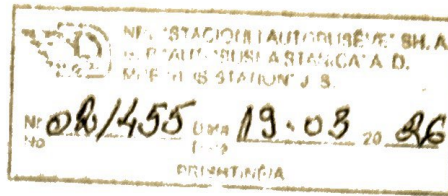 NPL "STACIONI I AUTOBUSËVE" SH.A
"AUTOBUSKA STANICA" A.D.
BUS STATION" J.S.
Nr. 02/455 Data 19.03 20 26
No
PRISHTINË/A